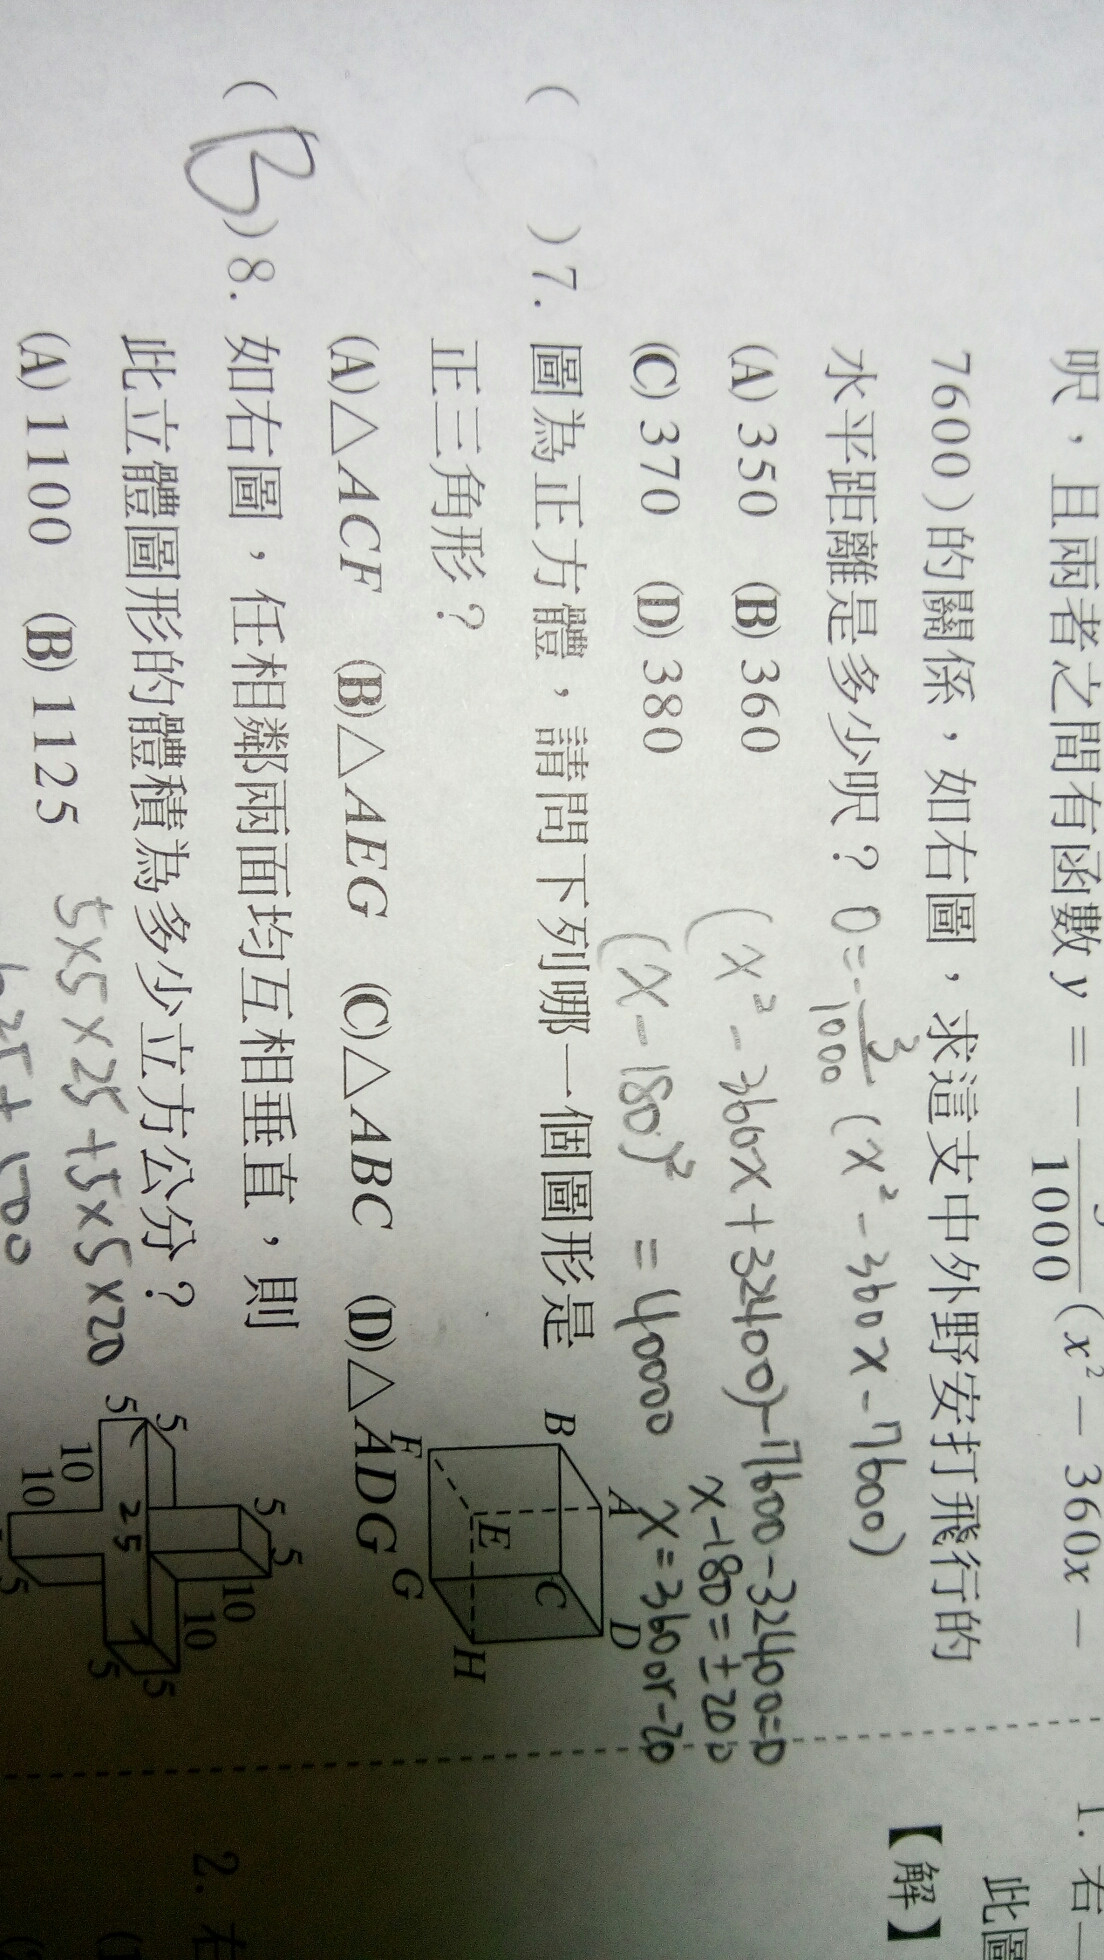 呎，且兩者之間有函數 y = − 3/1000 (x² − 360x −
7600) 的關係，如右圖，求這支中外野安打飛行的
水平距離是多少呎？ 0 = -3/1000 (x² - 360x - 7600)
(A) 350 (B) 360
(x² - 360x + 32400) - 7600 - 32400 = 0
(C) 370 (D) 380
(x - 180)² = 40000
x - 180 = ±200
( )7. 圖為正方體，請問下列哪一個圖形是
正三角形？
(A)△ACF (B)△AEG (C)△ABC (D)△ADG
B A
C D
F E
G H
( B )8. 如右圖，任相鄰兩面均互相垂直，則
此立體圖形的體積為多少立方公分？
(A) 1100 (B) 1125
5×5×25+5×5×20
5 5 5 5
10 25 10
10 10
5 5 5
1. 右
此圖
【解】
2. 右